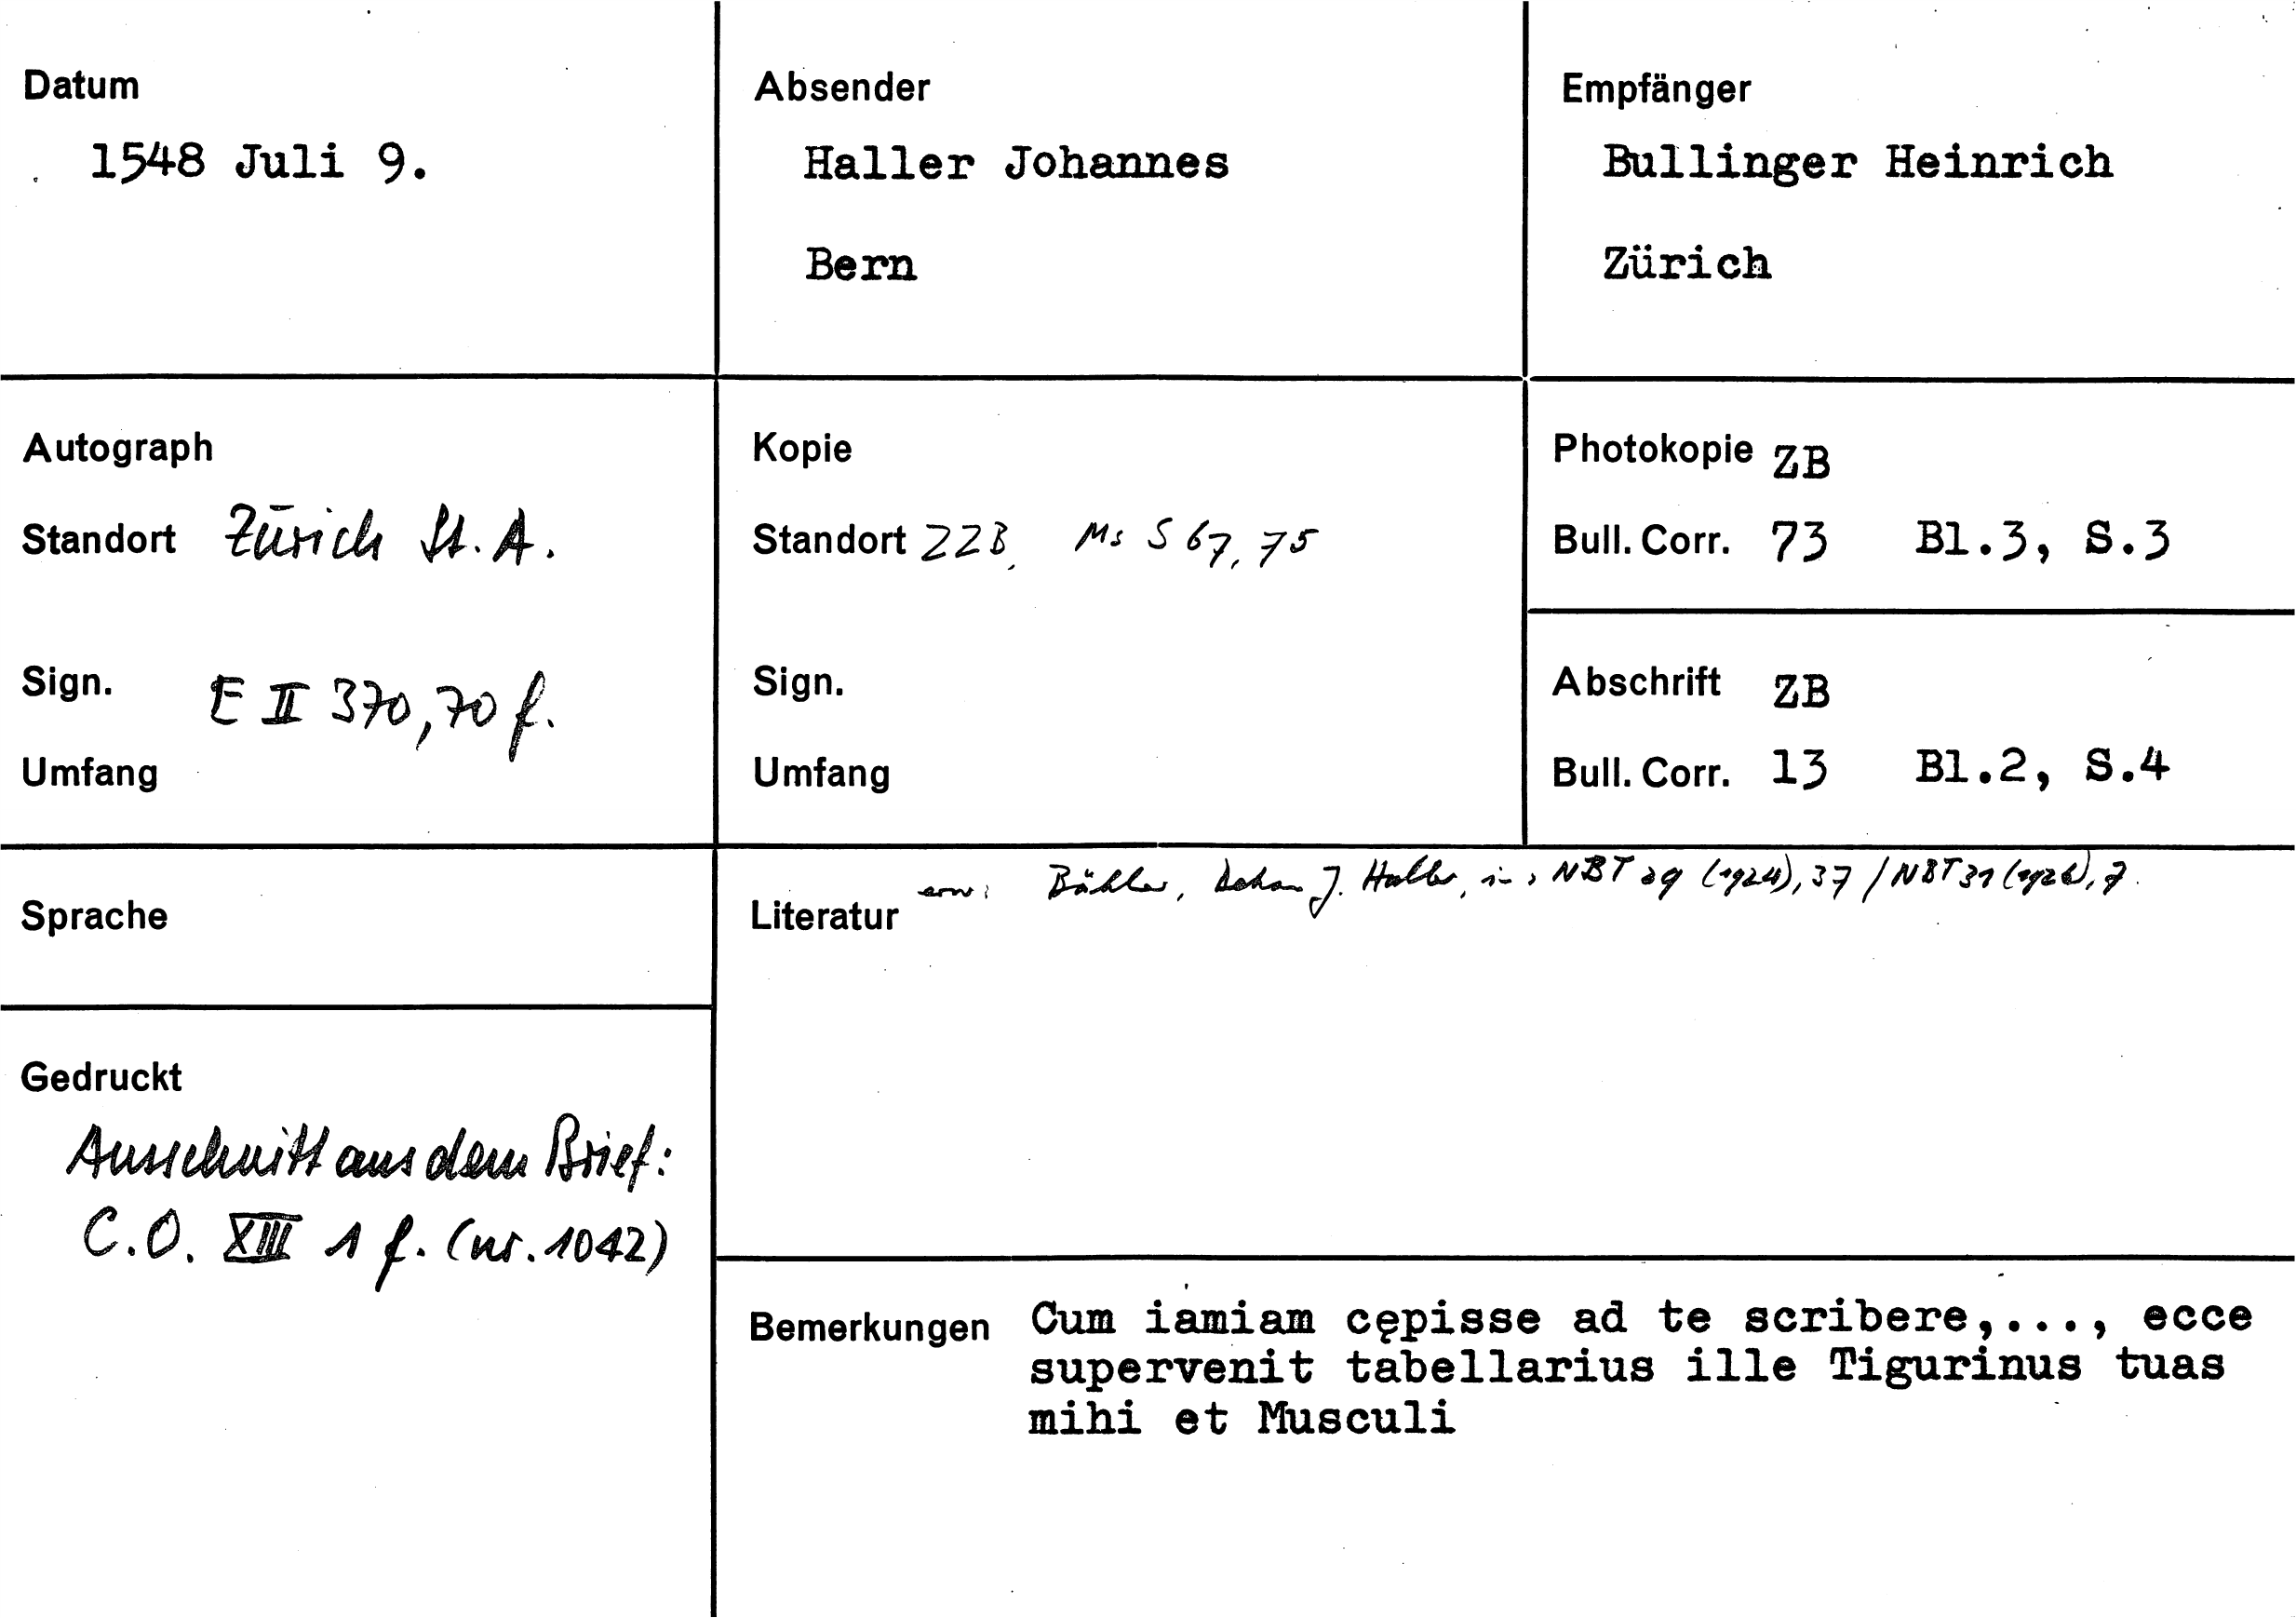 Datum
1548 Juli 9.
Absender
Haller Johannes
Bern
Empfänger
Bullinger Heinrich
Zürich
Autograph
Standort Zürich St. A.
Sign. E II 370, 70 f.
Umfang
Kopie
Standort ZZB, Ms S 67, 75
Sign.
Umfang
Photokopie ZB
Bull. Corr. 73 Bl.3, S.3
Abschrift ZB
Bull. Corr. 13 Bl.2, S.4
Sprache
Literatur erw: Bähler, Dekan J. Haller, in: NBT 29 (1924), 37 / NBT 31 (1926), 7.
Gedruckt
Ausschnitt aus dem Brief:
C.O. XIII 1 f. (nr. 1042)
Bemerkungen Cum iamiam cępisse ad te scribere,..., ecce
supervenit tabellarius ille Tigurinus tuas
mihi et Musculi